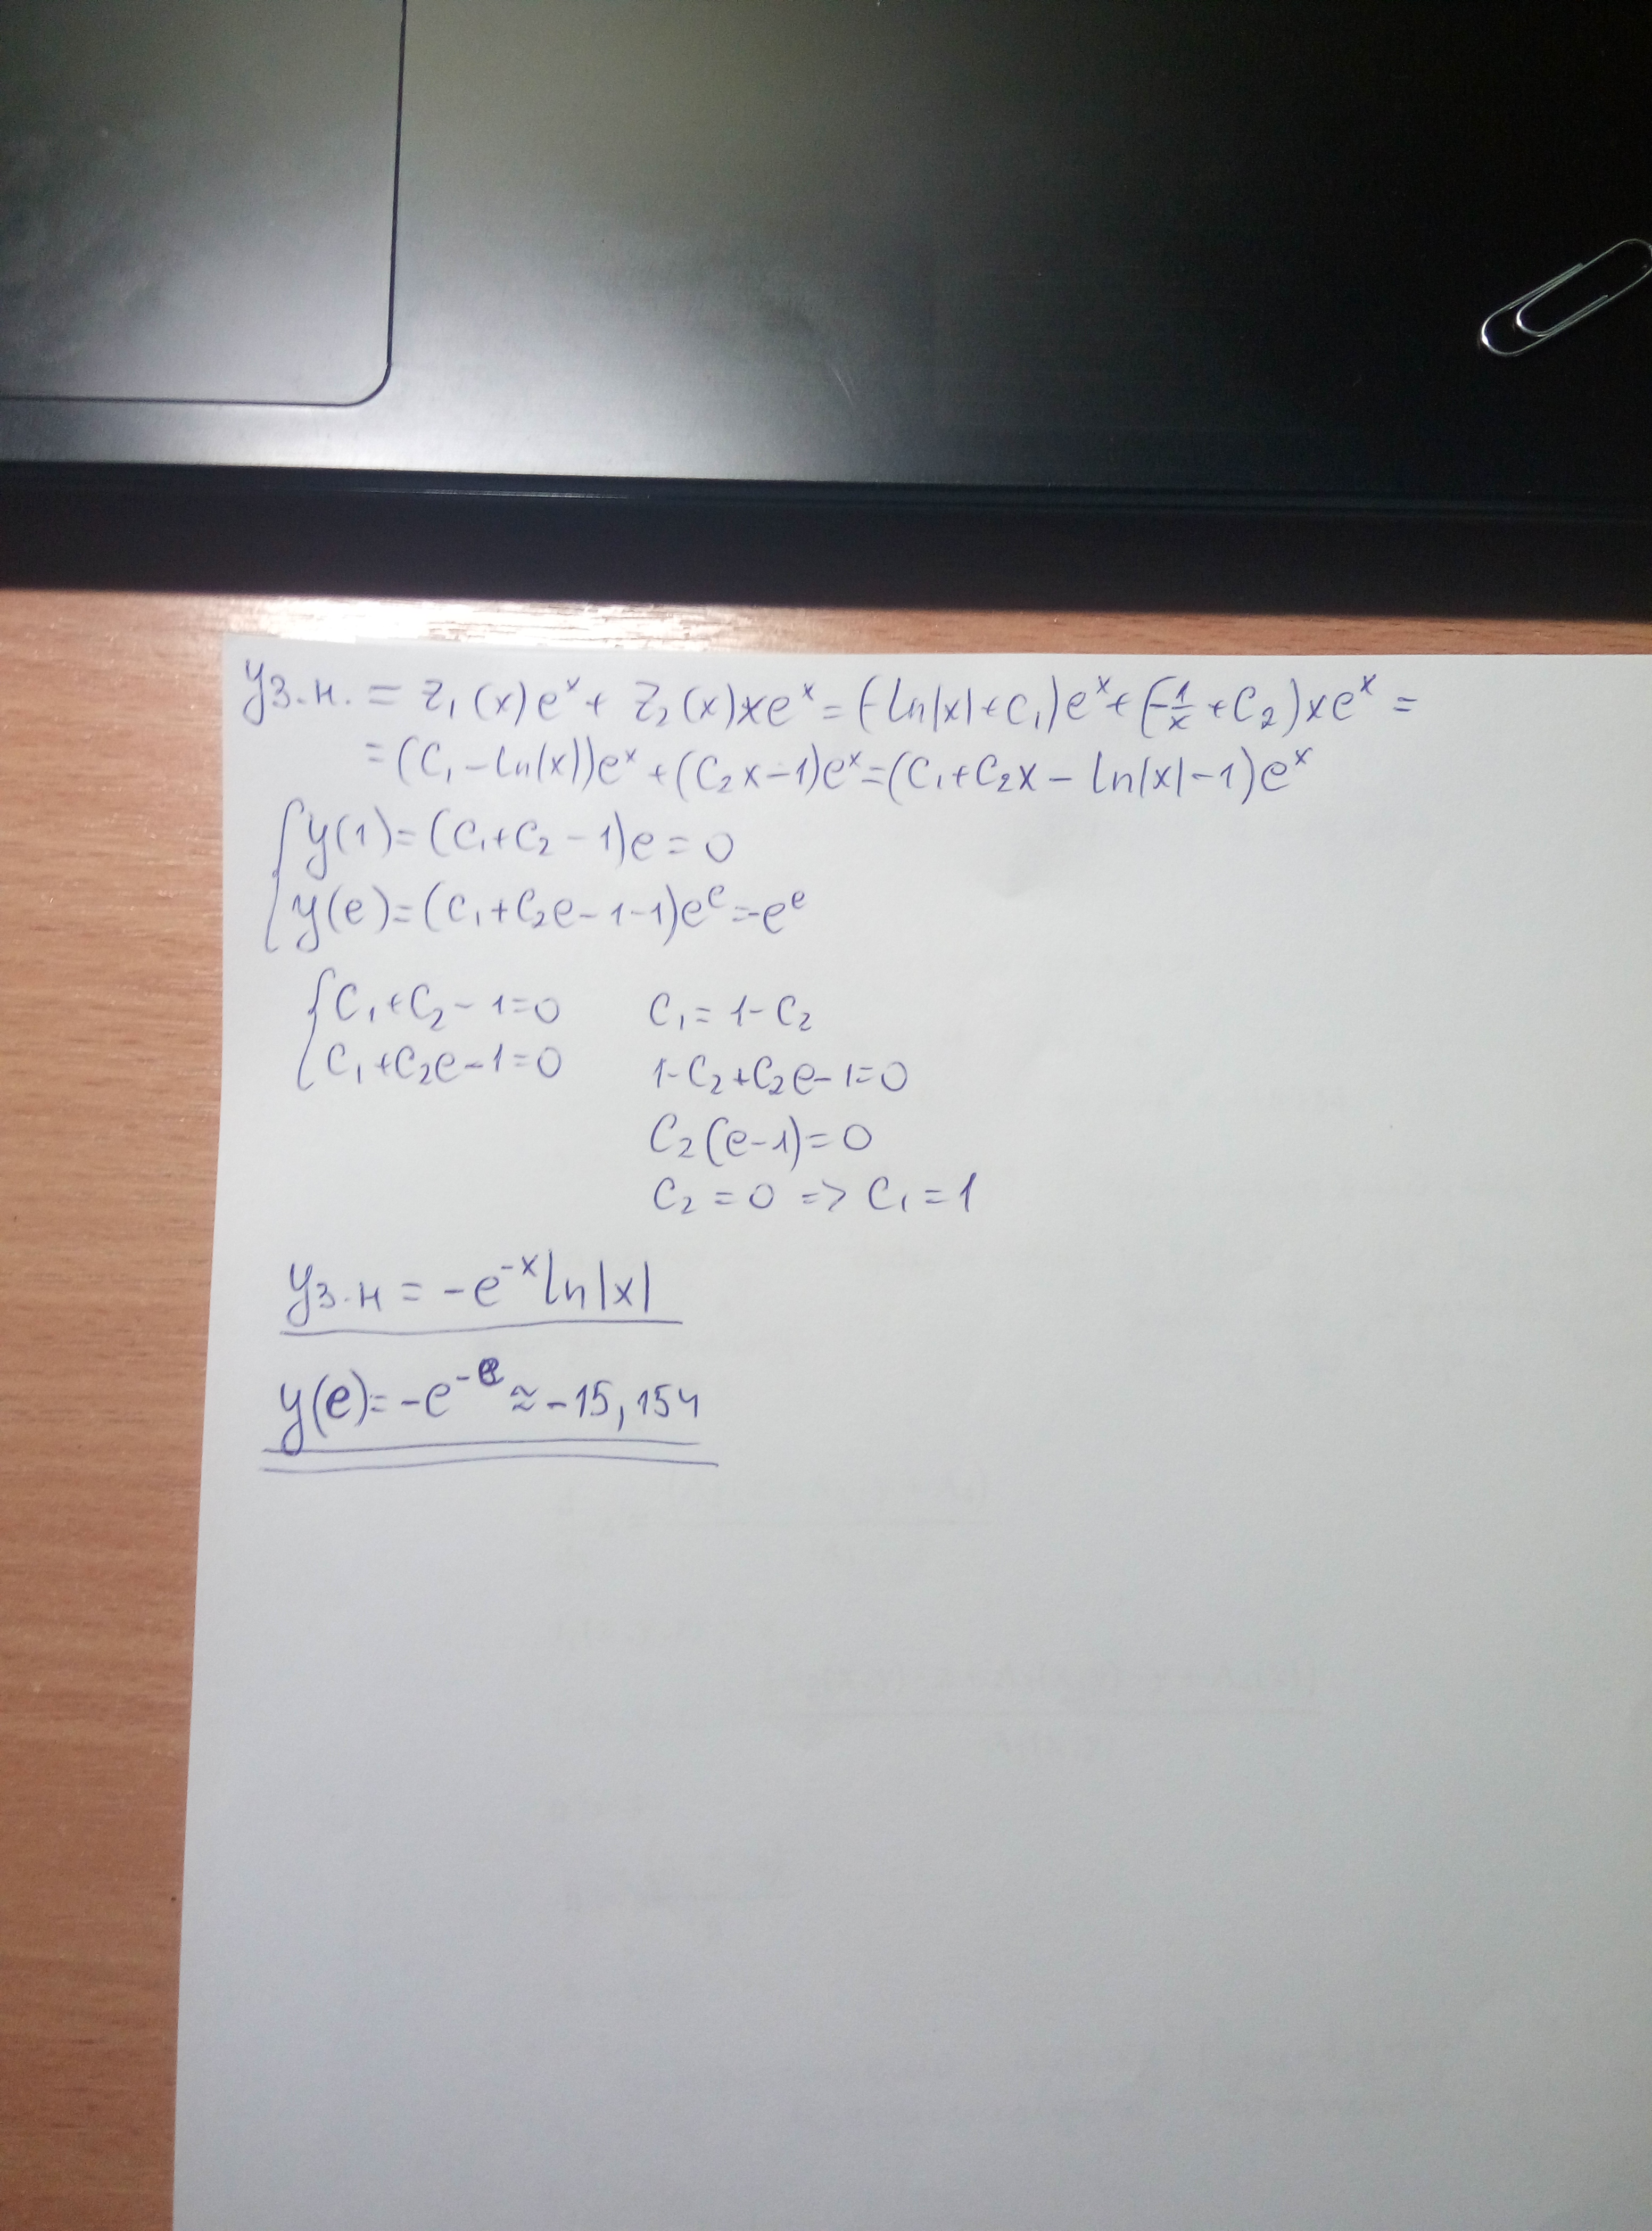 yз.н. = z₁(x)eˣ + z₂(x)xeˣ = (-ln|x|+C₁)eˣ + (-1/x + C₂)xeˣ =
= (C₁ - ln|x|)eˣ + (C₂x - 1)eˣ = (C₁ + C₂x - ln|x| - 1)eˣ
{ y(1) = (C₁ + C₂ - 1)e = 0
y(e) = (C₁ + C₂e - 1 - 1)e^e = -e^e
{ C₁ + C₂ - 1 = 0
C₁ + C₂e - 1 = 0
C₁ = 1 - C₂
1 - C₂ + C₂e - 1 = 0
C₂(e - 1) = 0
C₂ = 0 => C₁ = 1
yз.н = -e^-x ln|x|
y(e) = -e^-e ≈ -15,154